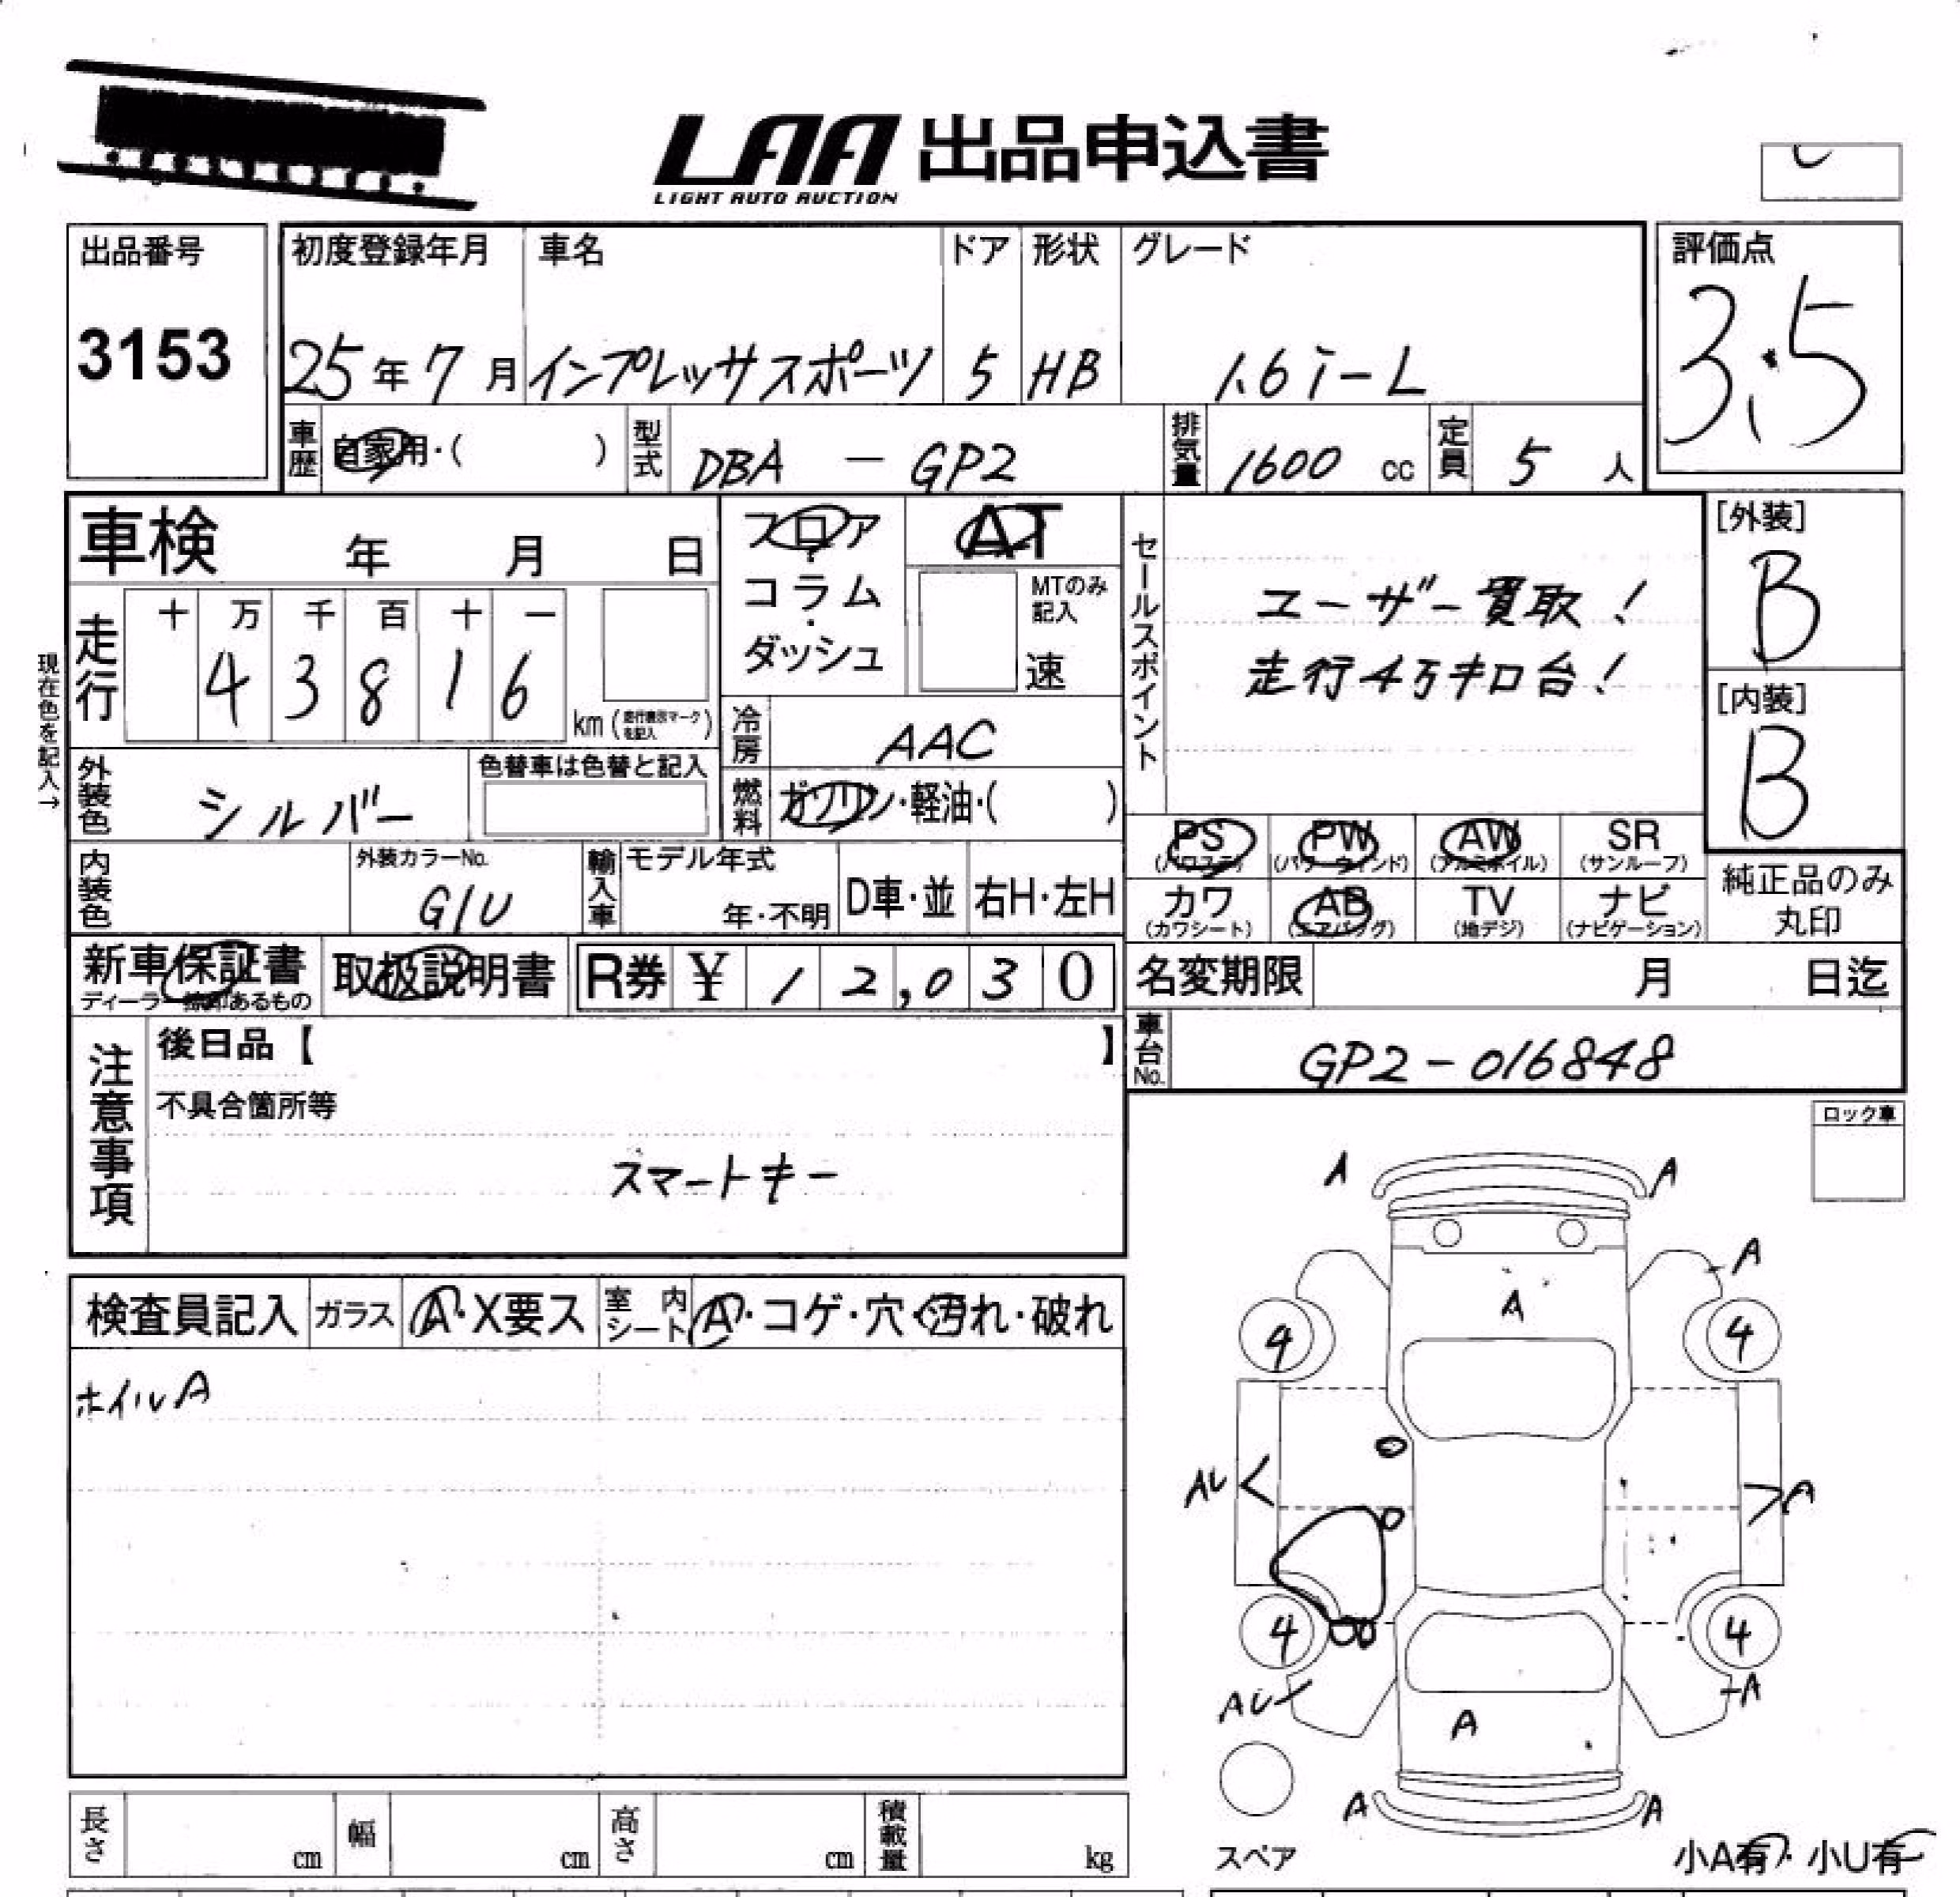 LAA 出品申込書
LIGHT AUTO AUCTION
出品番号
3153
初度登録年月
25年7月
車名
インプレッサスポーツ
ドア
5
形状
HB
グレード
1.6i-L
評価点
3.5
車歴
自家用・( )
型式
DBA - GP2
排気量
1600 cc
定員
5 人
車検 年 月 日
フロア・コラム・ダッシュ
AT
MTのみ記入
速
セールスポイント
ユーザー買取!
走行4万キロ台!
[外装]
B
[内装]
B
現在色を記入→
走行
十 万 千 百 十 一
4 3 8 1 6
km (走行表示マークを記入)
冷房
AAC
外装色
シルバー
色替車は色替と記入
燃料
ガソリン・軽油・( )
PS
(パワステ)
PW
(パワーウィンド)
AW
(アルミホイル)
SR
(サンルーフ)
カワ
(カワシート)
AB
(エアバッグ)
TV
(地デジ)
ナビ
(ナビゲーション)
純正品のみ
丸印
内装色
外装カラーNo.
G1U
輸入車
モデル年式
年・不明
D車・並
右H・左H
新車保証書
取扱説明書
R券 ¥ 12,030
名変期限 月 日迄
車台No.
GP2-016848
注意事項
後日品【 】
不具合箇所等
スマートキー
ロック車
検査員記入
ガラス
A・X要ス
室内シート
A・コゲ・穴・汚れ・破れ
ホイルA
A
A
A
A
4
4
AU
A
4
4
AU
A
A
A
A
スペア
小A有・小U有
長さ cm
幅 cm
高さ cm
積載量 kg